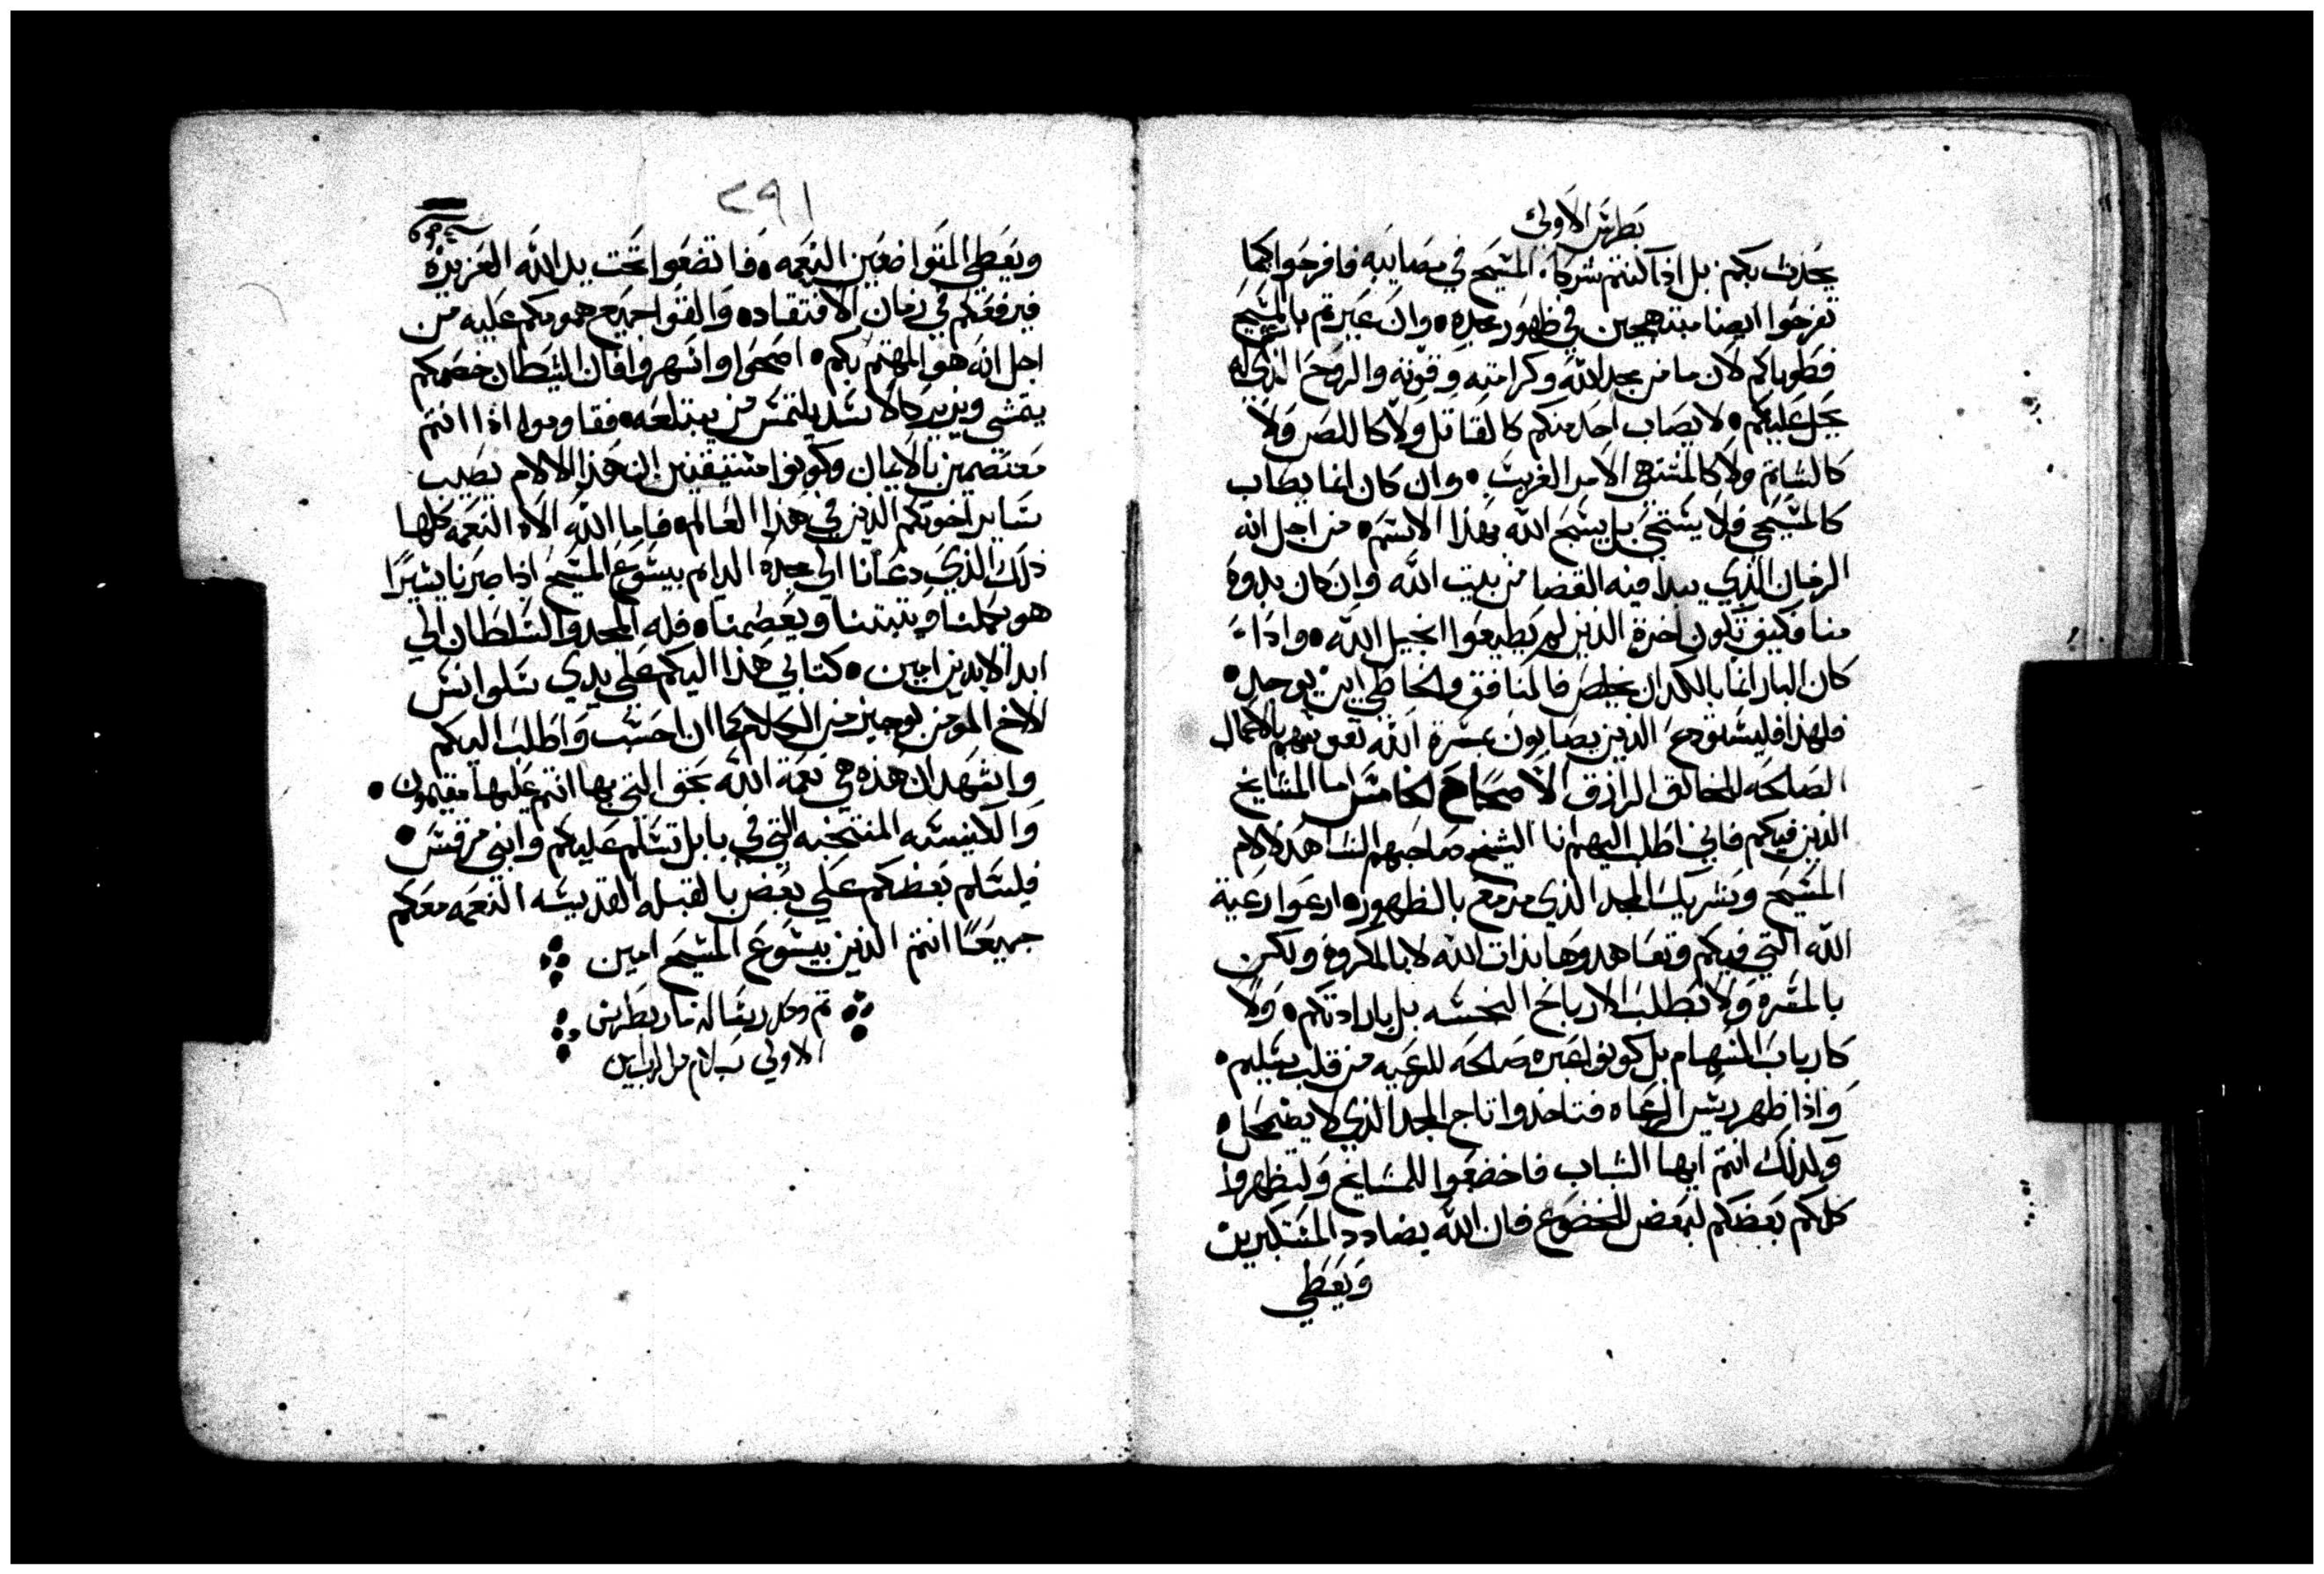 بطرس الاولى
يحدث بكم بل اذا كنتم شركاء المسيح في مصايبه فافرحوا كيما
تفرحوا ايضا مبتهجين في ظهور مجده • وان عيرتم بالمسيح
فطوباكم لان ما من مجد الله وكرامته وقوته والروح الذي له
يحل عليكم • لا يصاب احد منكم كالقاتل ولا كاللص ولا
كالشاتم ولا كالمشتهي الامر الغريب • وان كان انما يصاب
كالمسيحي فلا يستحي بل يسبح الله بهذا الاسم • من اجل انه
الزمان الذي يبدا فيه القضا من بيت الله وان كان بدوه
منا فكيف تكون اخرة الذين لم يطيعوا انجيل الله • واذا
كان البار انما بالكد ان يخلص فالمنافق والخاطي اين يوجد •
فلهذا فليستودع الذين يصابون بمسرة الله نفوسهم بالاعمال
الصالحه للخالق الرازق الاصحاح الخامس اما المشايخ
الذين فيكم فاني اطلب اليهم انا الشيخ صاحبهم الشاهد لالام
المسيح وشريك المجد الذي مزمع بالظهور • ارعوا رعية
الله التي فيكم وتعاهدوها بذات الله لا بالمكروه ولكن
بالمسرة ولا بطلب الارباح النجسه بل بارادتكم • ولا
كارباب السهام بل كونوا عبره صالحه للرعيه من قلب سليم •
واذا ظهر ريس الرعاه فتاخدوا تاج المجد الذي لا يضمحل •
ولذلك انتم ايها الشباب فاخضعوا للمشايخ ولتظهروا
كلكم بعضكم لبعض الخضوع فان الله يضادد المتكبرين
ويعطي
٢٩١
ويعطي المتواضعين النعمه • فاتضعوا تحت يد الله العزيزه
فيرفعكم في زمان الافتقاد • والقوا جميع همومكم عليه من
اجل انه هو المهتم بكم • اصحوا واسهروا فان الشيطان خصمكم
يمشي ويزير كالاسد يلتمس من يبتلعه • فقاوموا اذا انتم
معتصمين بالايمان وكونوا متيقنين ان هذا الالام يصيب
ساير اخوتكم الذين في هذا العالم • فاما الله الاه النعمه كلها
ذلك الذي دعانا الى مجده الدايم بيسوع المسيح اذا صبرنا يسيرًا
هو يكملنا ويثبتنا ويعصمنا • فله المجد والسلطان الى
ابد الابدين امين • كتابي هذا اليكم على يدي سلوانس
الاخ المومن بوجيز من الكلام كما ان احسب واطلب اليكم
واشهد ان هذه هي نعمة الله بحق التي بها انتم عليها مقيمون •
والكنيسه المنتخبه التي في بابل تسلم عليكم وابني مرقس •
فليسلم بعضكم على بعض بالقبله القديسه النعمه معكم
جميعًا انتم الذين بيسوع المسيح امين
تم وكمل رسالة مار بطرس
الاولى بسلام من الرب امين